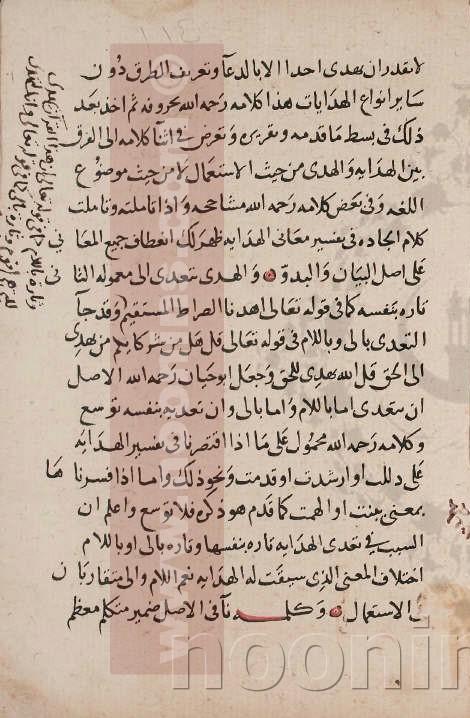 لا يقدر ان يهدى احدا الا بالدعا وتعريف الطرق دون
ساير انواع الهدايات هذا كلامه رحمه الله بحروفه ثم اخذ بعد
ذلك فى بسط ما قدمه وتقريره وتعرض فى اثنا كلامه الى الفرق
بين الهدايه والهدى من حيث الاستعمال لا من حيث موضوع
اللغه وفى بعض كلامه رحمه الله مشاححه واذا تاملته وتاملت
كلام الجاده فى تفسير معانى الهدايه ظهر لك انعطاف جميع المعانى
على اصل البيان والبدو والهدى يتعدى الى معموله الثانى
تاره بنفسه كما فى قوله تعالى اهدنا الصراط المستقيم وقد جا
التعدى بالى وباللام فى قوله تعالى قل هل من شركايكم من يهدى
الى الحق قل الله يهدى للحق وجعل ابو حيان رحمه الله الاصل
ان يتعدى اما باللام واما بالى وان تعديه بنفسه توسع
وكلامه رحمه الله محمول على ما اذا اقتصرنا فى تفسير الهدايه
على دللت او ارشدت او قدمت ونحو ذلك واما اذا فسرناها
بمعنى بينت او الهمت كما قدم هو ذكره فلا توسع واعلم ان
السبب فى تعدى الهدايه تاره بنفسها وتاره بالى او باللام
اختلاف المعنى الذى سيقت له الهدايه نعم اللام والى متقاربان
فى الاستعمال وكلمه نا فى الاصل ضمير متكلم معظم
noonin